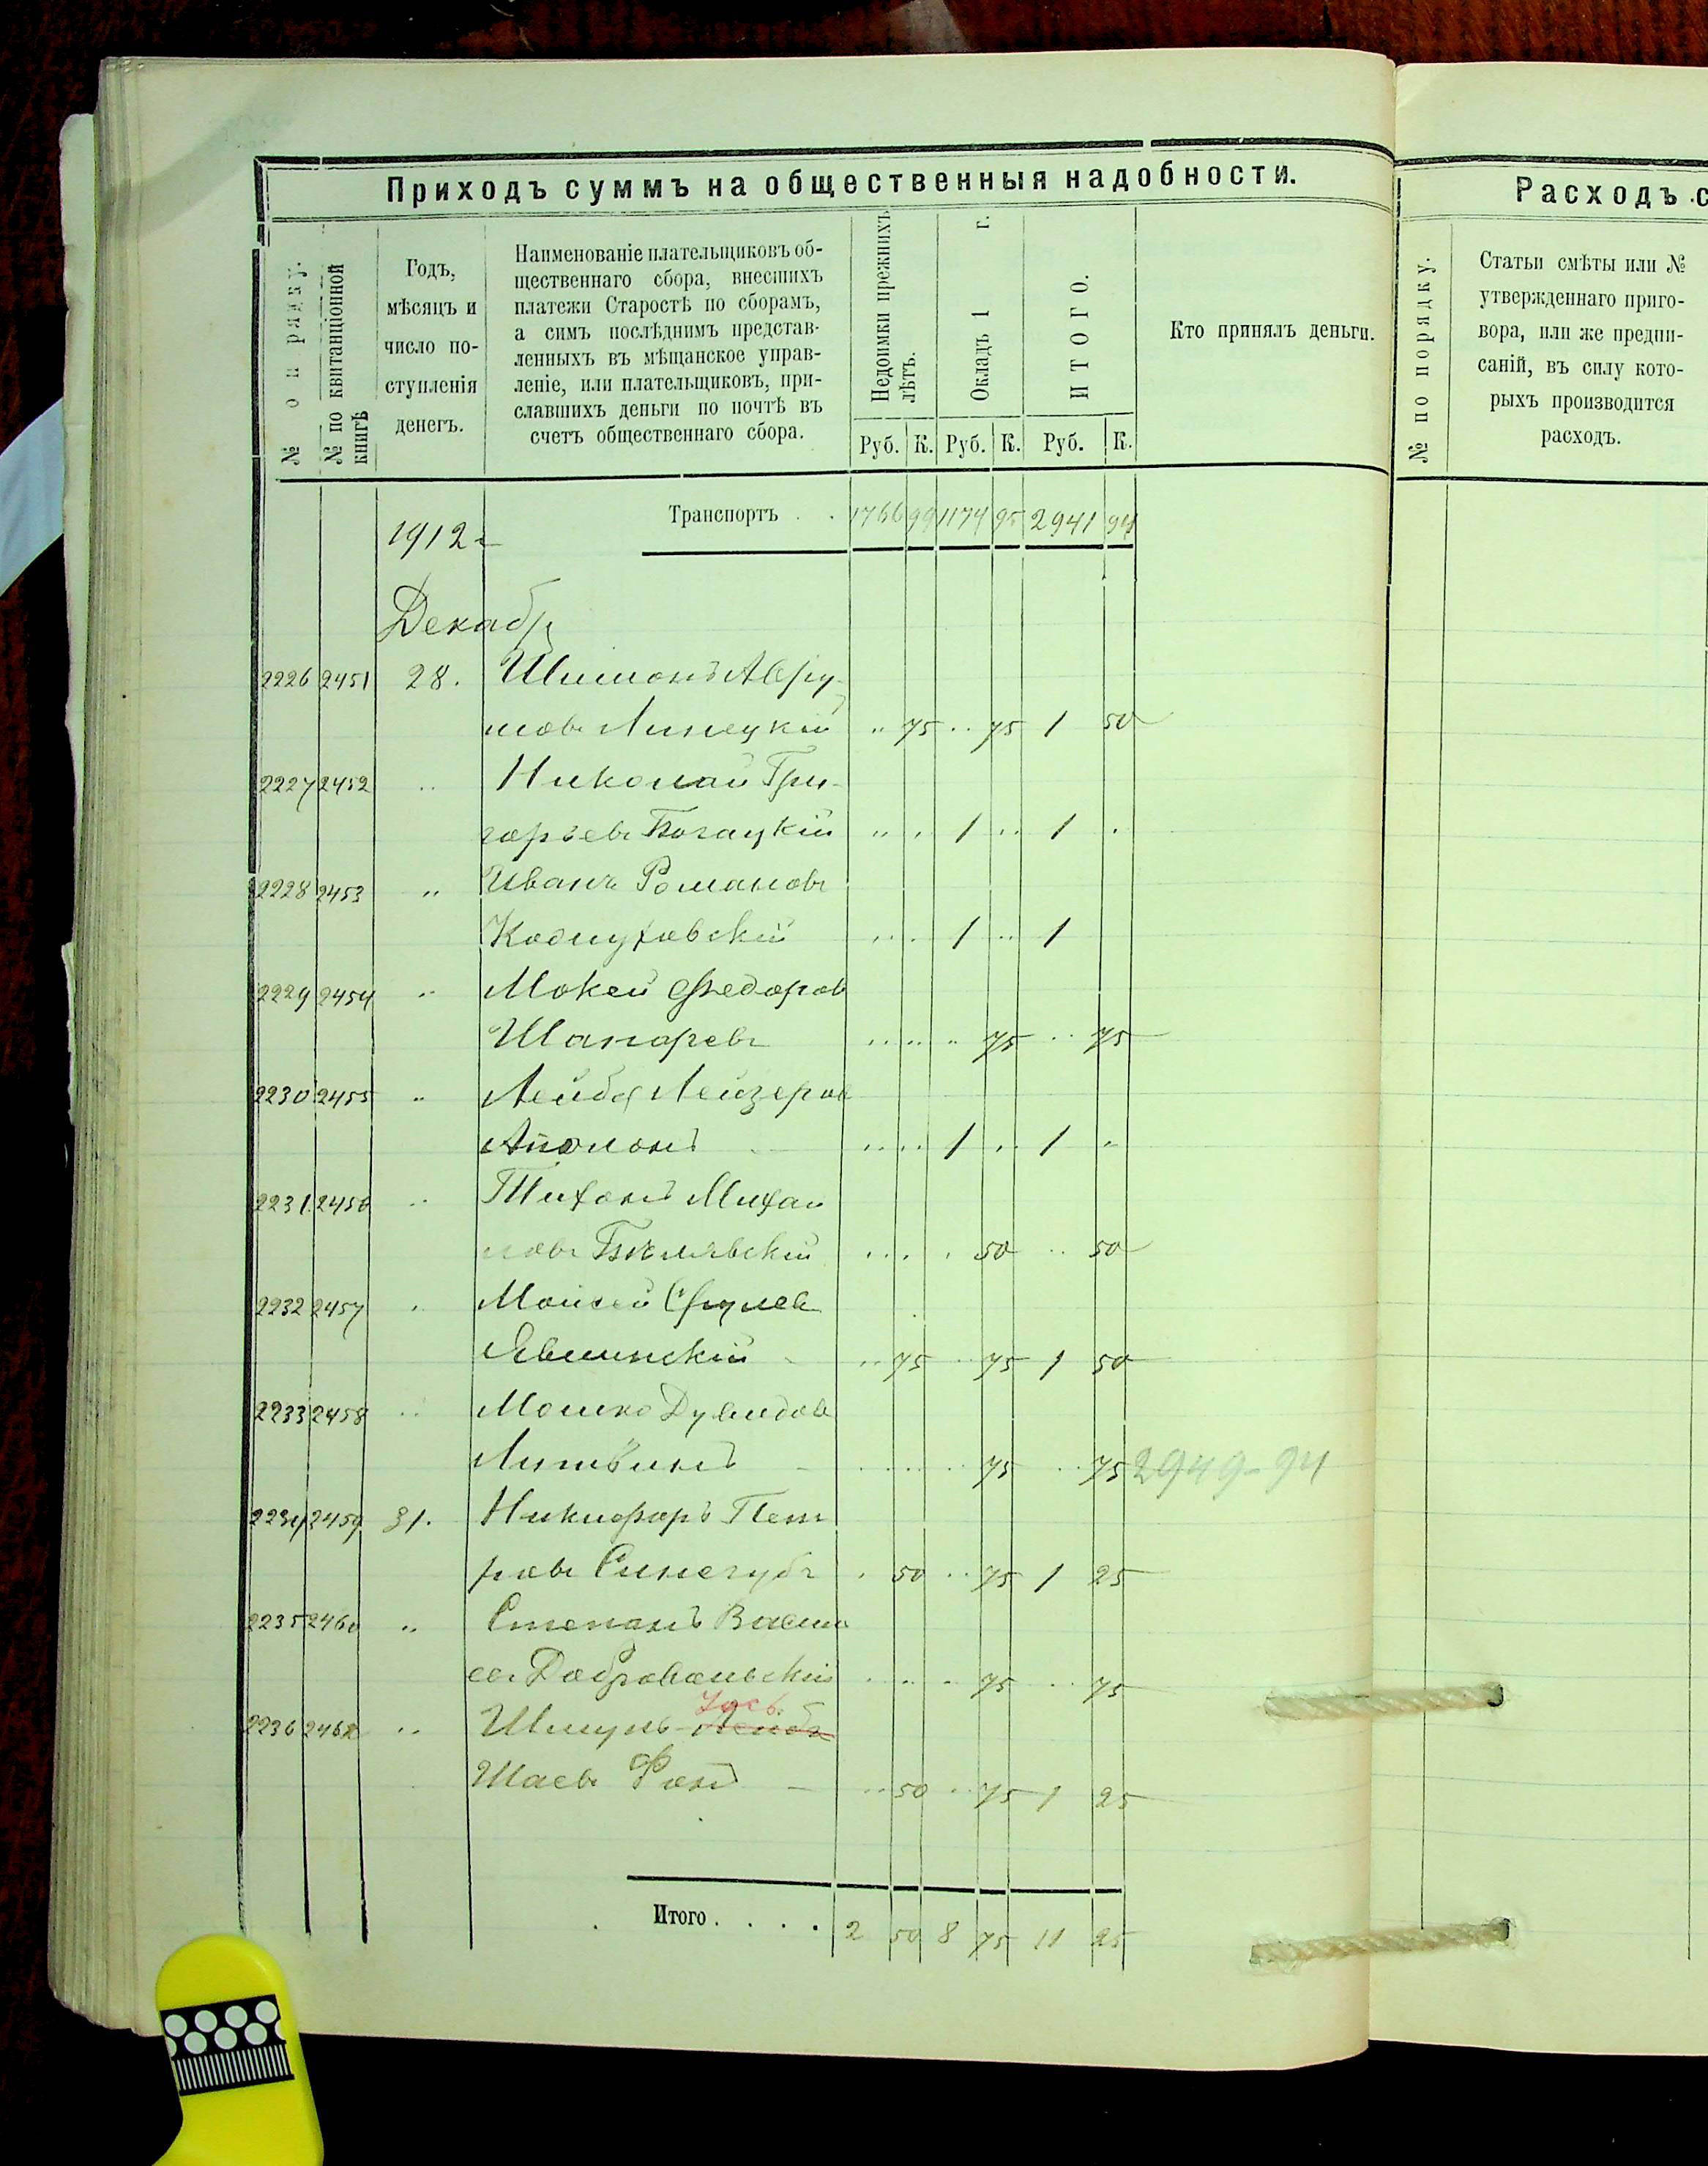 Приходъ суммъ на общественныя надобности.
№ по порядку.
№ по квитанціонной книгѣ
Годъ,
мѣсяцъ и
число по-
ступленія
денегъ.
Наименованіе плательщиковъ об-
щественнаго сбора, внесшихъ
платежи Старостѣ по сборамъ,
а симъ послѣднимъ представ-
ленныхъ въ мѣщанское управ-
леніе, или плательщиковъ, при-
славшихъ деньги по почтѣ въ
счетъ общественнаго сбора.
Недоимки прежнихъ лѣтъ.
Окладъ 1 г.
ИТОГО.
Руб. К. Руб. К. Руб. К.
Кто принялъ деньги.
Транспортъ . . 1766 99 1174 95 2941 94
1912 г
Декабр
2226 2451 28. Шимонъ Авру-
мовъ Липецкій „ 75 „ 75 1 50
2227 2452 „ Николай Гри-
горьевъ Богацкій „ „ 1 „ 1 „
2228 2453 „ Иванъ Романовъ
„ „ 1 „ 1
2229 2454 „ Мокей Федоров
Шапоревъ „ „ „ 75 „ 75
2230 2455 „ Лейба Лейзеров
Аполонъ „ „ 1 „ 1 „
2231 2456 „ Тихонъ Михаи
ловъ „ „ „ 50 „ 50
2232 2457 „ Моисей Срулев
Явшинскій „ 75 „ 75 1 50
2233 2458 „ Мошко Дувидов
Литвинъ „ „ „ 75 „ 75 2949-94
2234 2459 31. Никифоръ Пет
ровъ Синегубъ „ 50 „ 75 1 25
2235 2460 „ Степанъ Васил
евъ Добровольскій „ „ „ 75 „ 75
2236 246 „ Шмуль-Лейба
Шаевъ Фонъ „ 50 „ 75 1 25
Итого . . . . 2 50 8 75 11 25
Расходъ с
№ по порядку.
Статьи смѣты или №
утвержденнаго приго-
вора, или же предпи-
саній, въ силу кото-
рыхъ производится
расходъ.